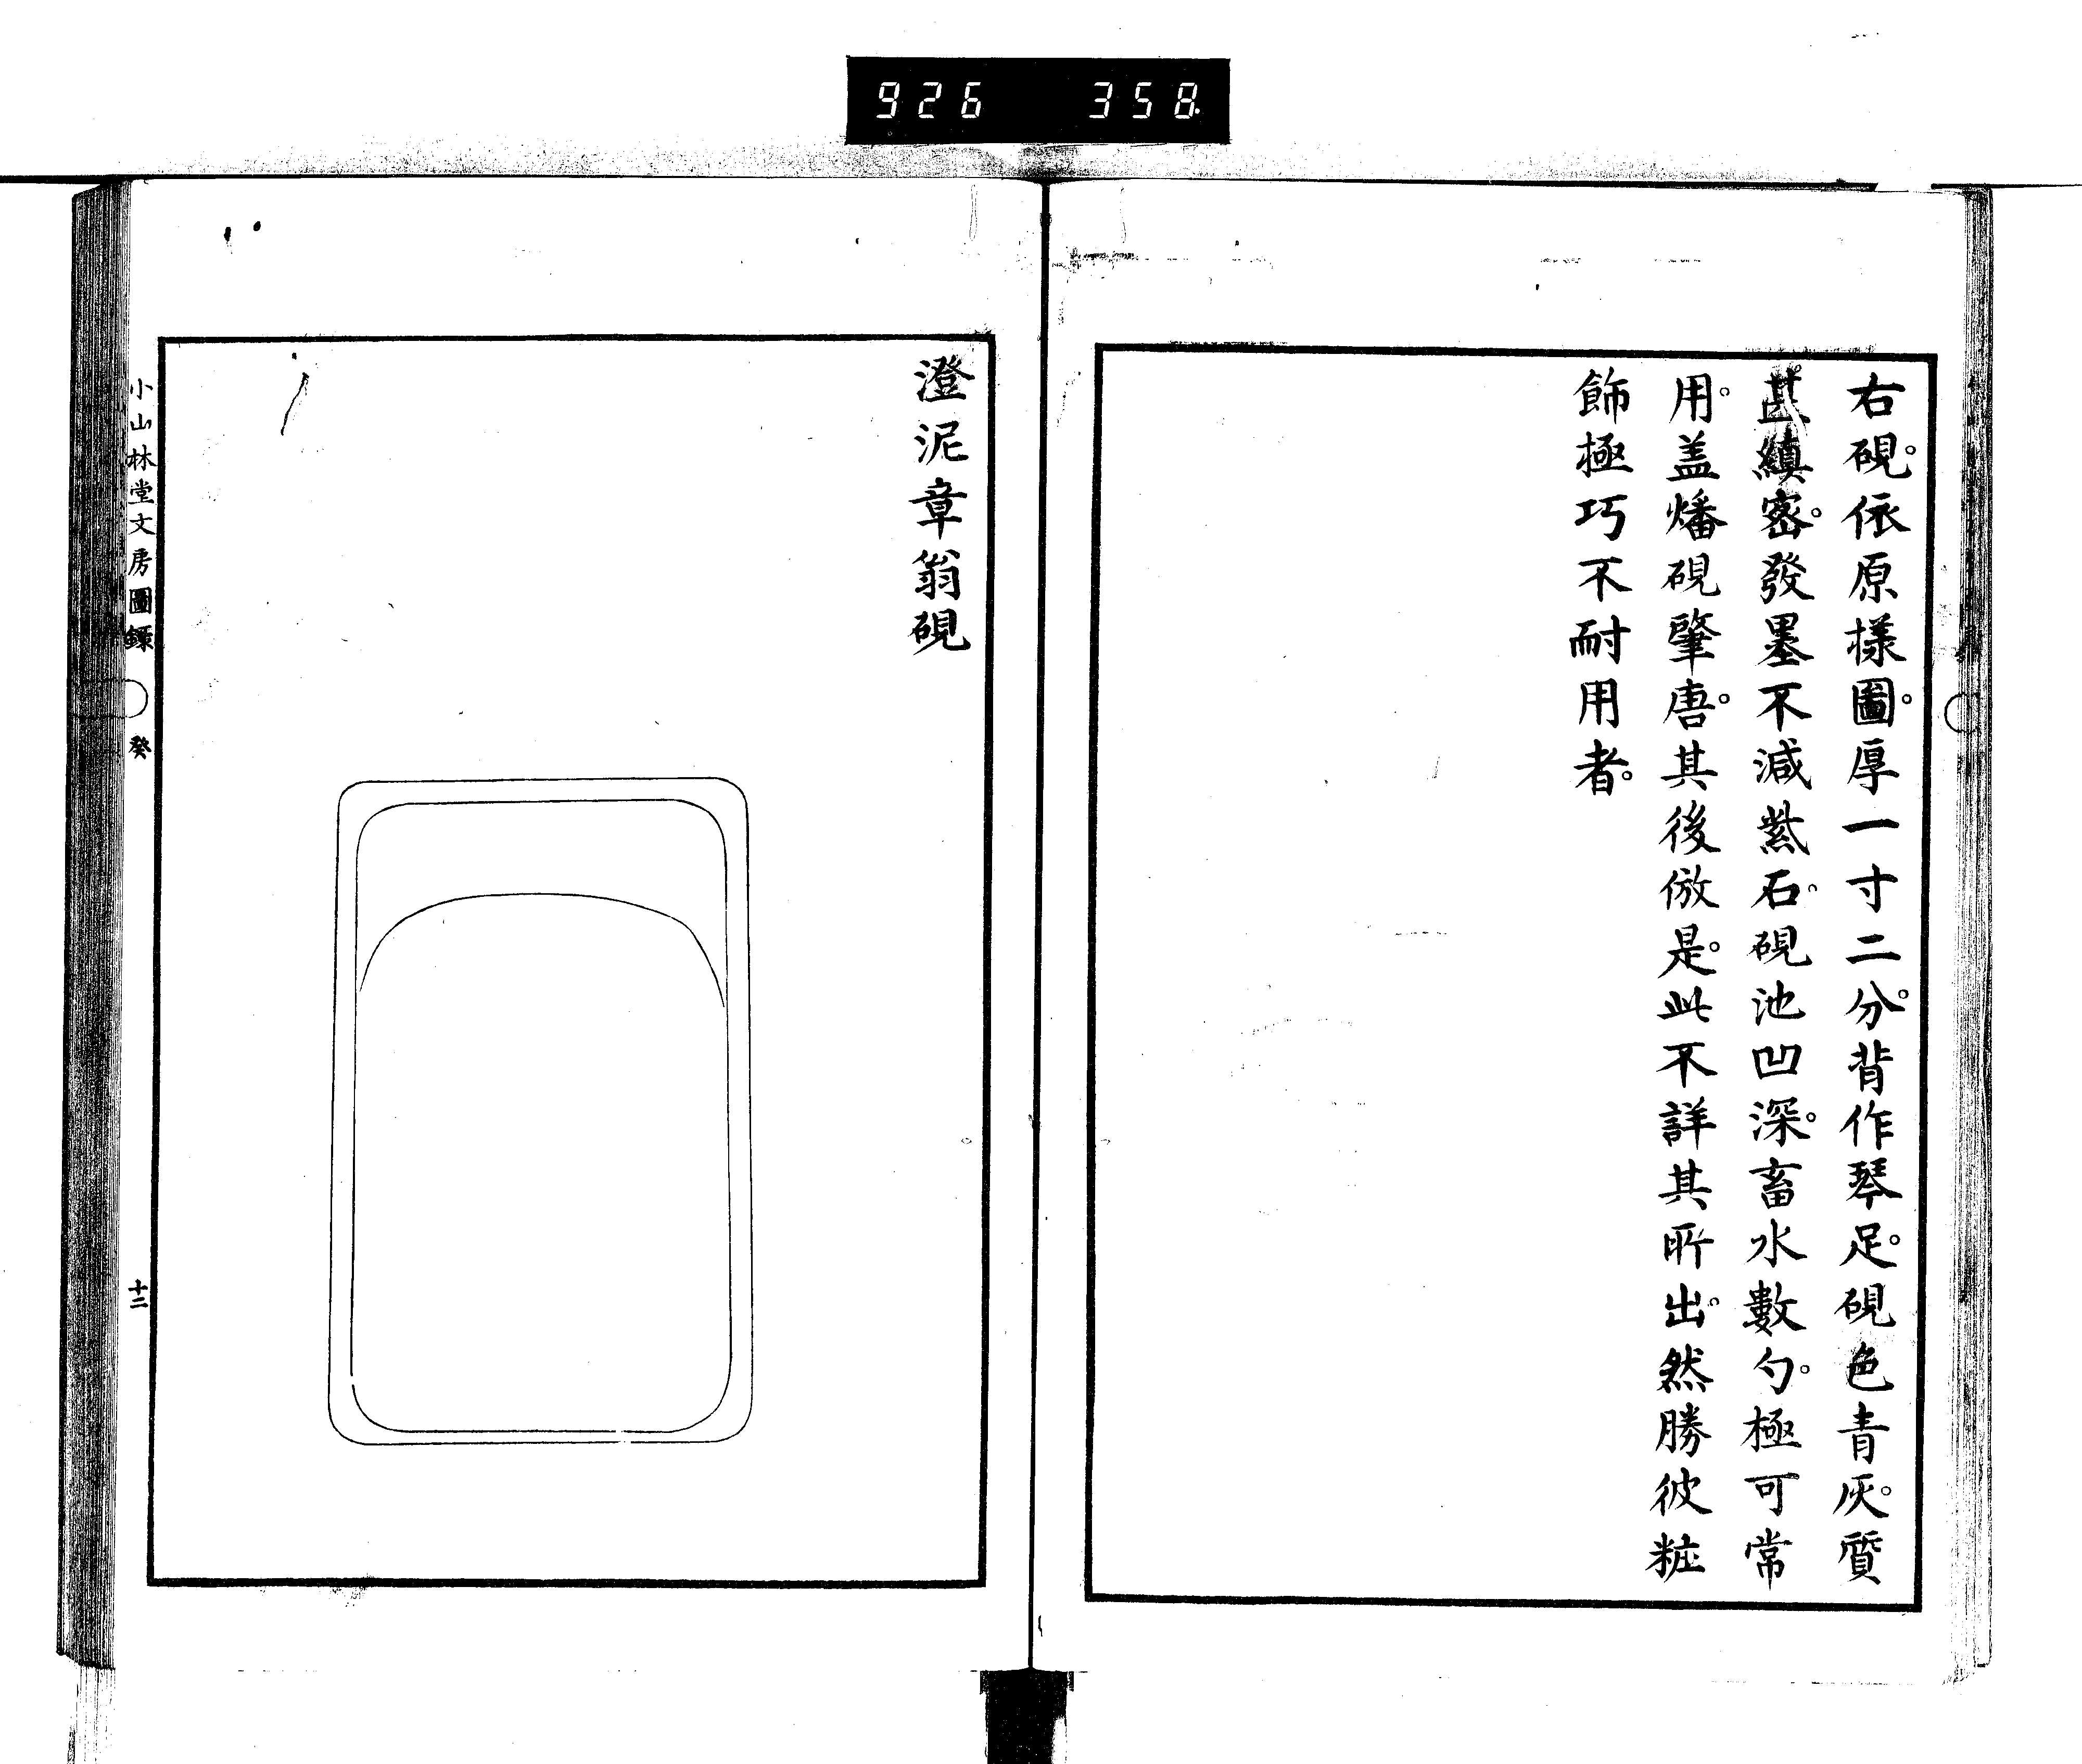 926 358
右硯。依原樣圖。厚一寸二分。背作琴足。硯色青灰。質
甚縝密。發墨不減𣾰石。硯池凹深。畜水數勺。極可常
用。盖燔硯肇唐。其後倣是。此不詳其所出。然勝彼粧
飾極巧不耐用者。
澄泥章翁硯
小山林堂文房圖錄 癸 十二